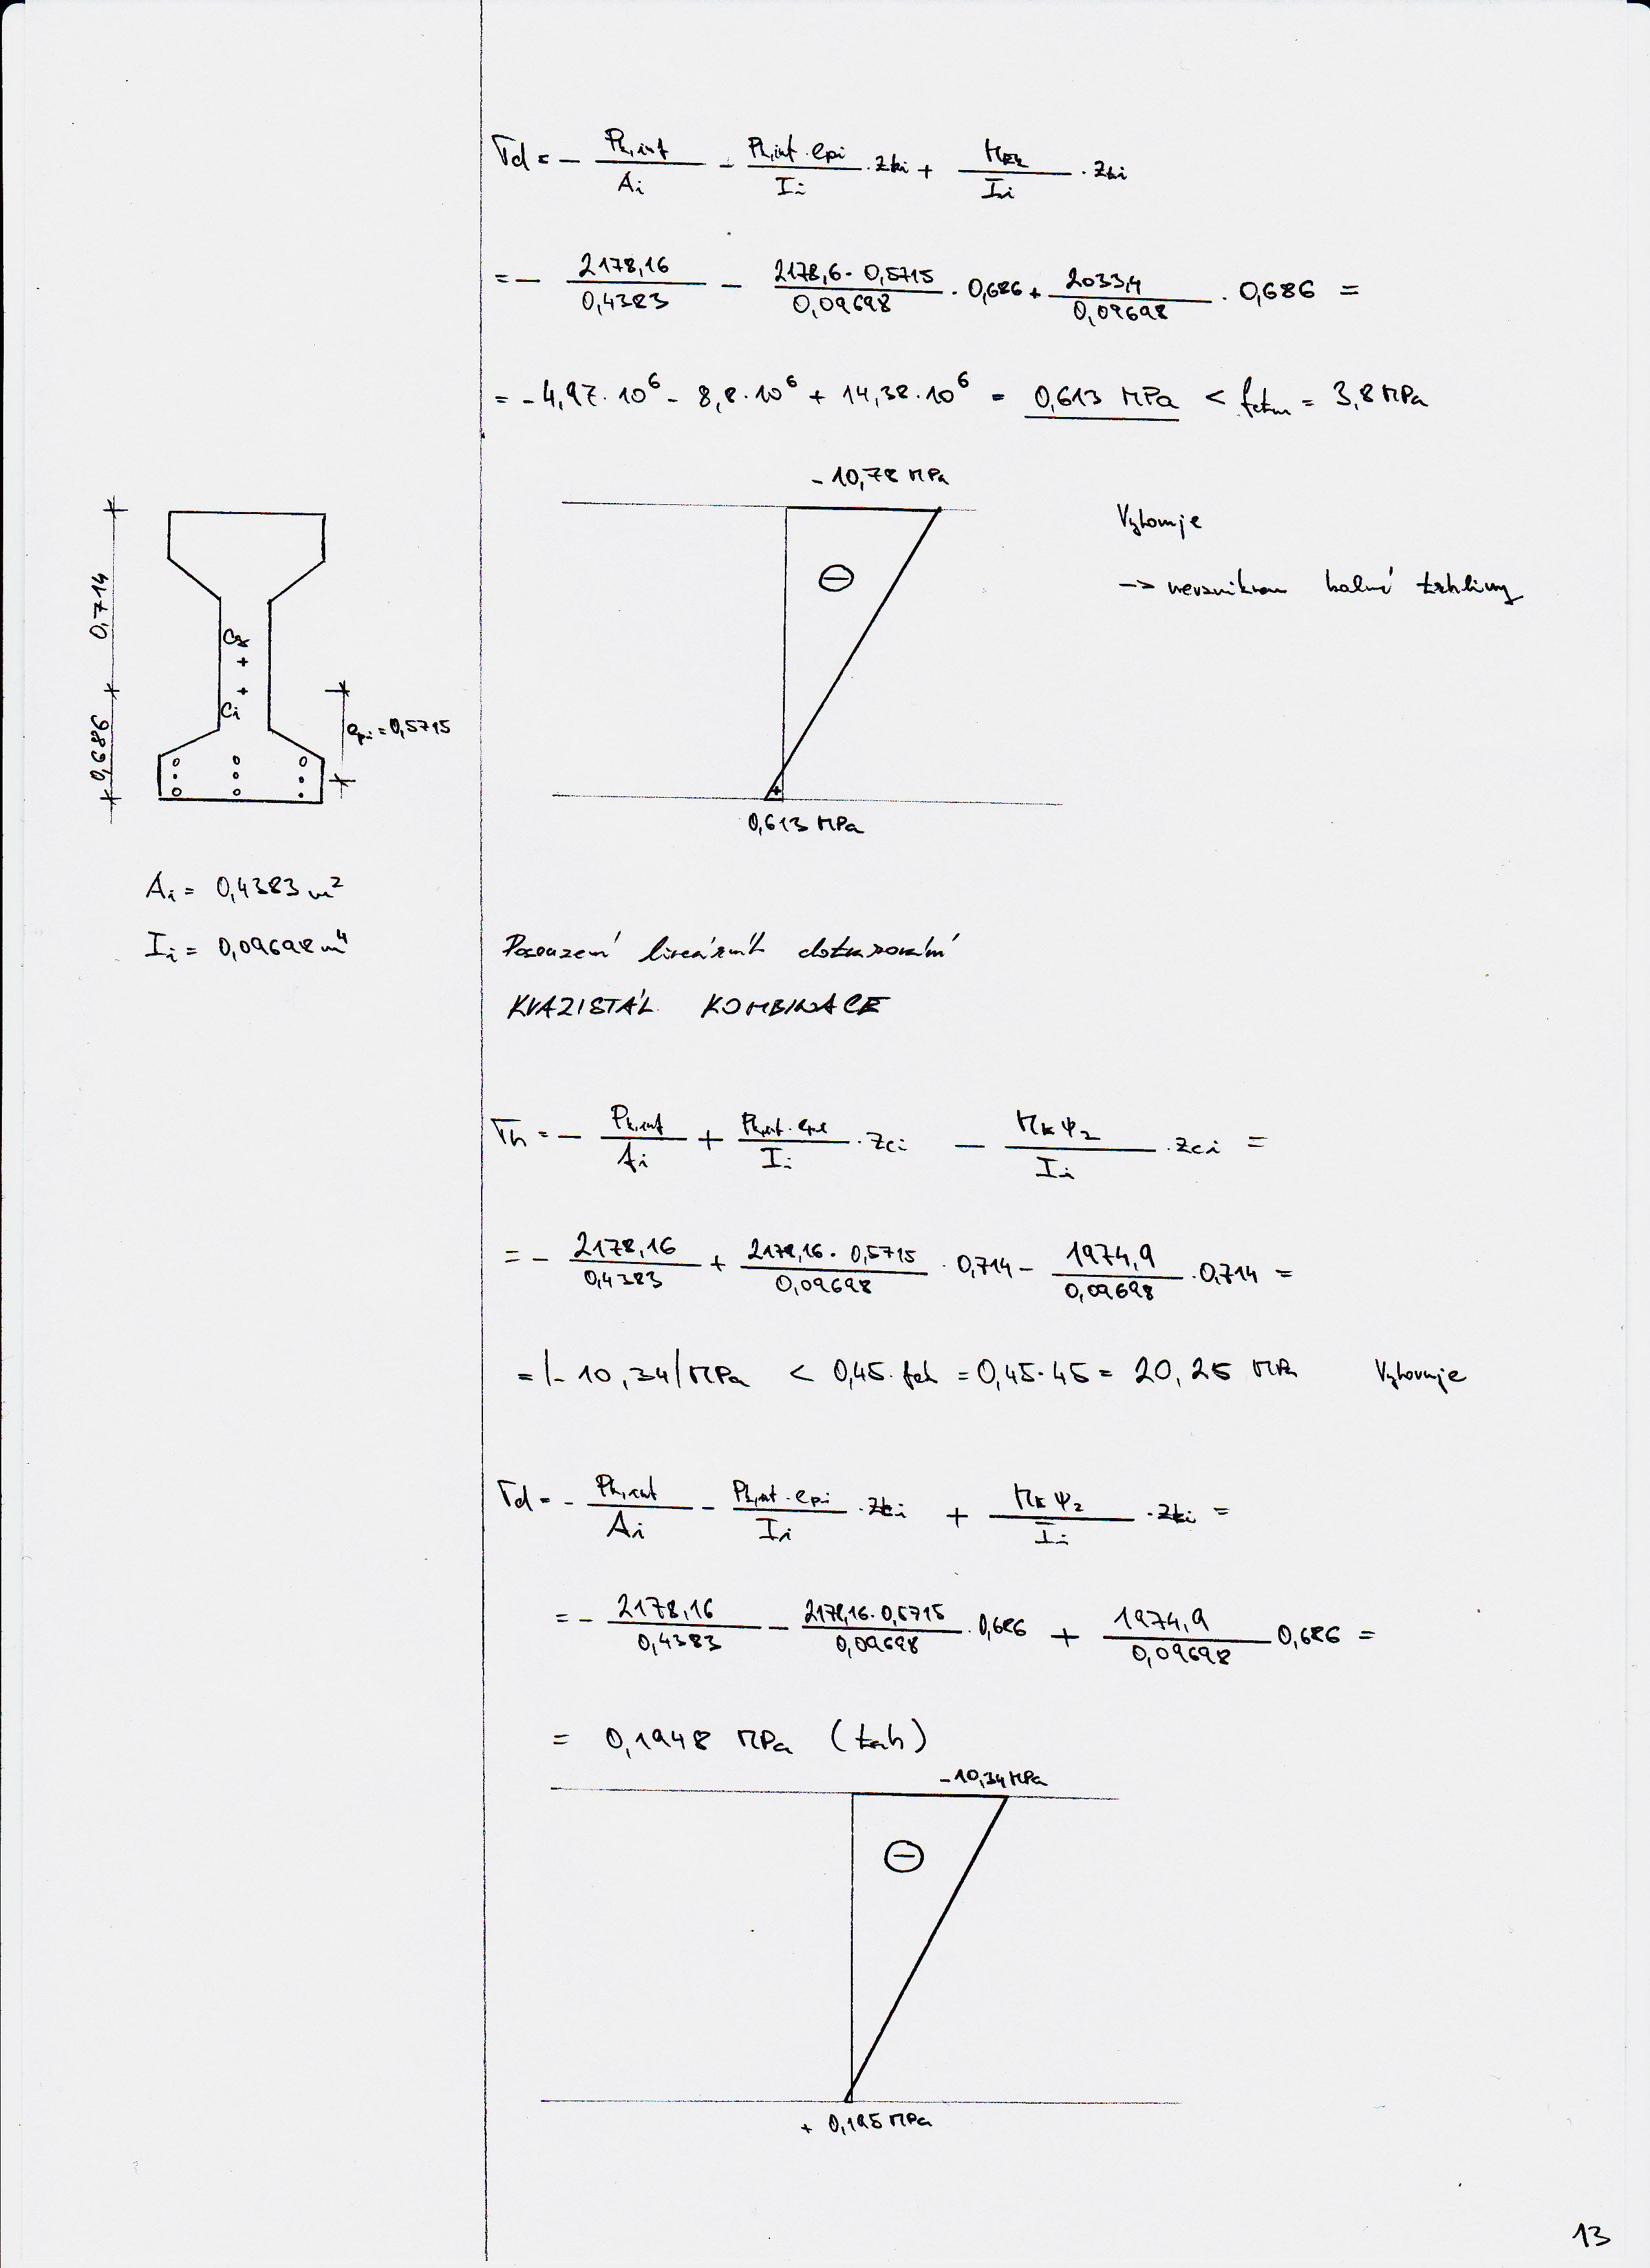 σd = - Pk,inf / Ai - Pk,inf · epi / Ii · zti + MEk / Ii · zti
= - 2178,16 / 0,4383 - 2178,6 · 0,5715 / 0,09698 · 0,686 + 2033,4 / 0,09698 · 0,686 =
= - 4,97 · 10⁶ - 8,8 · 10⁶ + 14,38 · 10⁶ = 0,613 MPa < fctm = 3,8 MPa
- 10,78 MPa
Vyhovuje
-> nevzniknou trhliny
⊖
+
0,613 MPa
0,714
0,686
Ci
epi = 0,5715
Ai = 0,4383 m²
Ii = 0,09698 m⁴
Posouzení lineárního dotvarování
KVAZISTÁL. KOMBINACE
σh = - Pk,inf / Ai + Pk,inf · epi / Ii · zci - Mk ψ2 / Ii · zci =
= - 2178,16 / 0,4383 + 2178,16 · 0,5715 / 0,09698 · 0,714 - 1974,9 / 0,09698 · 0,714 =
= |- 10,34| MPa < 0,45 · fck = 0,45 · 45 = 20,25 MPa Vyhovuje
σd = - Pk,inf / Ai - Pk,inf · epi / Ii · zti + Mk ψ2 / Ii · zti =
= - 2178,16 / 0,4383 - 2178,16 · 0,5715 / 0,09698 · 0,686 + 1974,9 / 0,09698 0,686 =
= 0,1948 MPa (tah)
- 10,34 MPa
⊖
+ 0,195 MPa
13